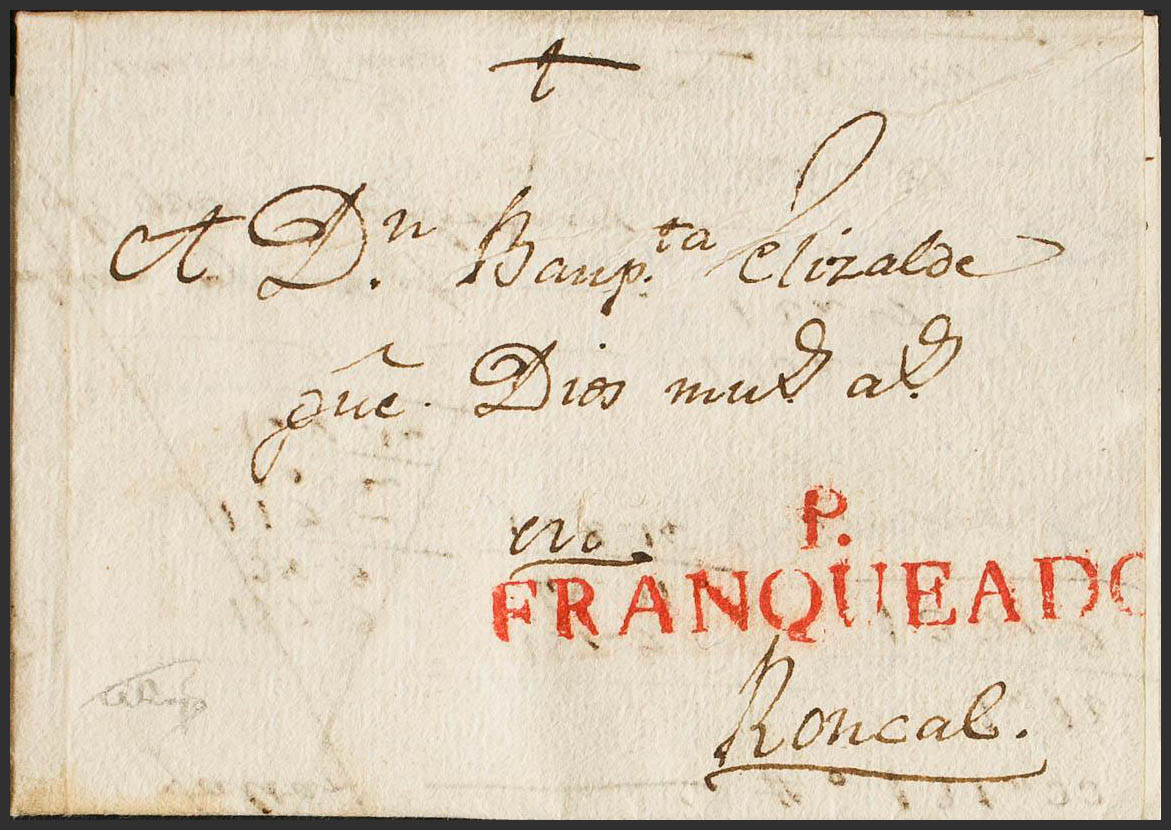 +
A Dn. Baup.ta Elizalde
gūe. Dios mus. as.
en
P.
FRANQUEADO
Roncal.